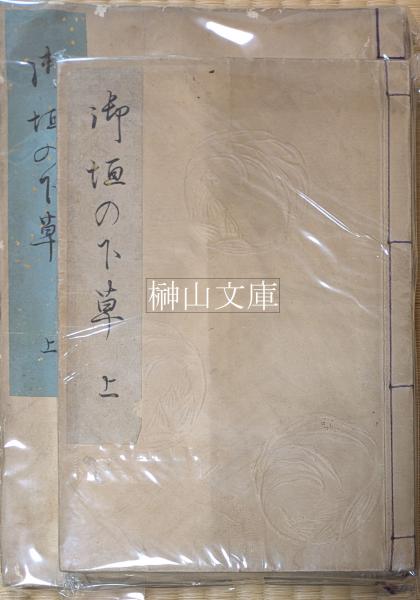 御垣の下草 上
御垣の下草 上
榊山文庫